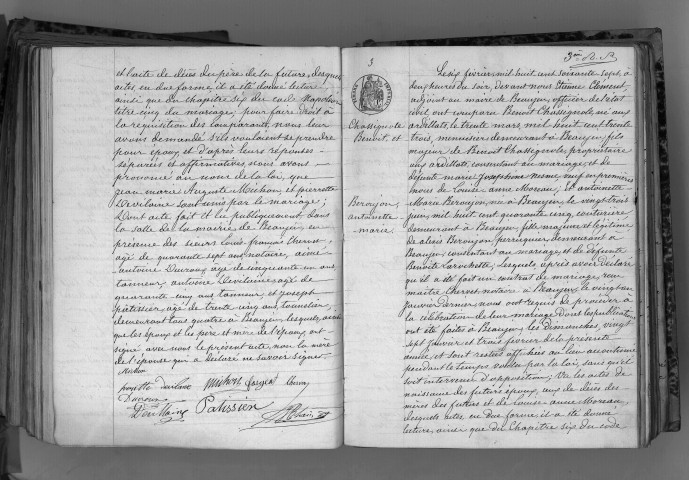 et l'acte de décès du père de la future, desquels
actes, en due forme, il a été donné lecture,
ainsi que du chapitre six du code Napoléon
titre cinq du mariage; pour faire droit à
la réquisition des comparants, nous leur
avons demandé s'ils voulaient se prendre
pour époux et d'après leurs réponses
séparées et affirmatives nous avons
prononcé au nom de la loi, que
Jean Marie Auguste Michon et pierrette
Devilaine sont unis par le mariage;
Dont acte fait et lu publiquement dans
la salle de la mairie de Beaujeu, en
présence des sieurs Louis françois Chernet,
agé de quarante sept ans notaire, aimé
antoine Ducroux agé de cinquante un ans
tanneur, antoine Devilaine agé de
quarante cinq ans tanneur et Joseph
patissier, agé de trente cinq ans, tonnelier
demeurant tous quatre à Beaujeu, lesquels, ainsi
que les époux et les père et mère de l'époux, ont
signé avec nous le présent acte non la mère
de l'épouse qui a déclaré ne savoir signer
Michon
Ducroux
Devillaine Patissier
3
Chassignole
Benoit, et
Beroujon,
antoinette
marie
3me
Le six février, mil huit cent soixante sept, à
deux heures du soir, devant nous Etienne Clement,
adjoint au maire de Beaujeu, officier de l'état
civil, ont comparu Benoit Chassignole, né aux
ardillats, le trente mars mil huit cent trente
trois, menuisier demeurant à Beaujeu, fils
majeur de Benoit Chassignole, propriétaire
aux ardillats, consentant au mariage, et de
défunte marie Josephine Mesme, veuf en premières
noces de Louise anne Moreau; Et antoinette
Marie Beroujon, née à Beaujeu, le vingt trois
juin, mil huit cent quarante cinq, couturière
demeurant à Beaujeu, fille majeure et légitime
de alexis Beroujon, perruquier, demeurant à
Beaujeu, consentant au mariage, et de défunte
Benoite Larochette, lesquels après avoir déclaré
qu'il a été fait un contrat de mariage, reçu
maître Chernet notaire à Beaujeu, le vingt un
janvier dernier, nous ont requis de procéder à
la célébration de leur mariage dont les publications
ont été faites à Beaujeu, les Dimanches, vingt
sept Janvier et trois février de la présente
année, et sont restées affichées au lieu accoutumé
pendant le temps voulu par la loi, sans qu'il
soit intervenu d'opposition; Vu les actes de
naissance des futurs époux, ceux de décès des
mères des futurs et de Louise anne Moreau,
desquels actes, en due forme, il a été donné
lecture, ainsi que du chapitre six du code